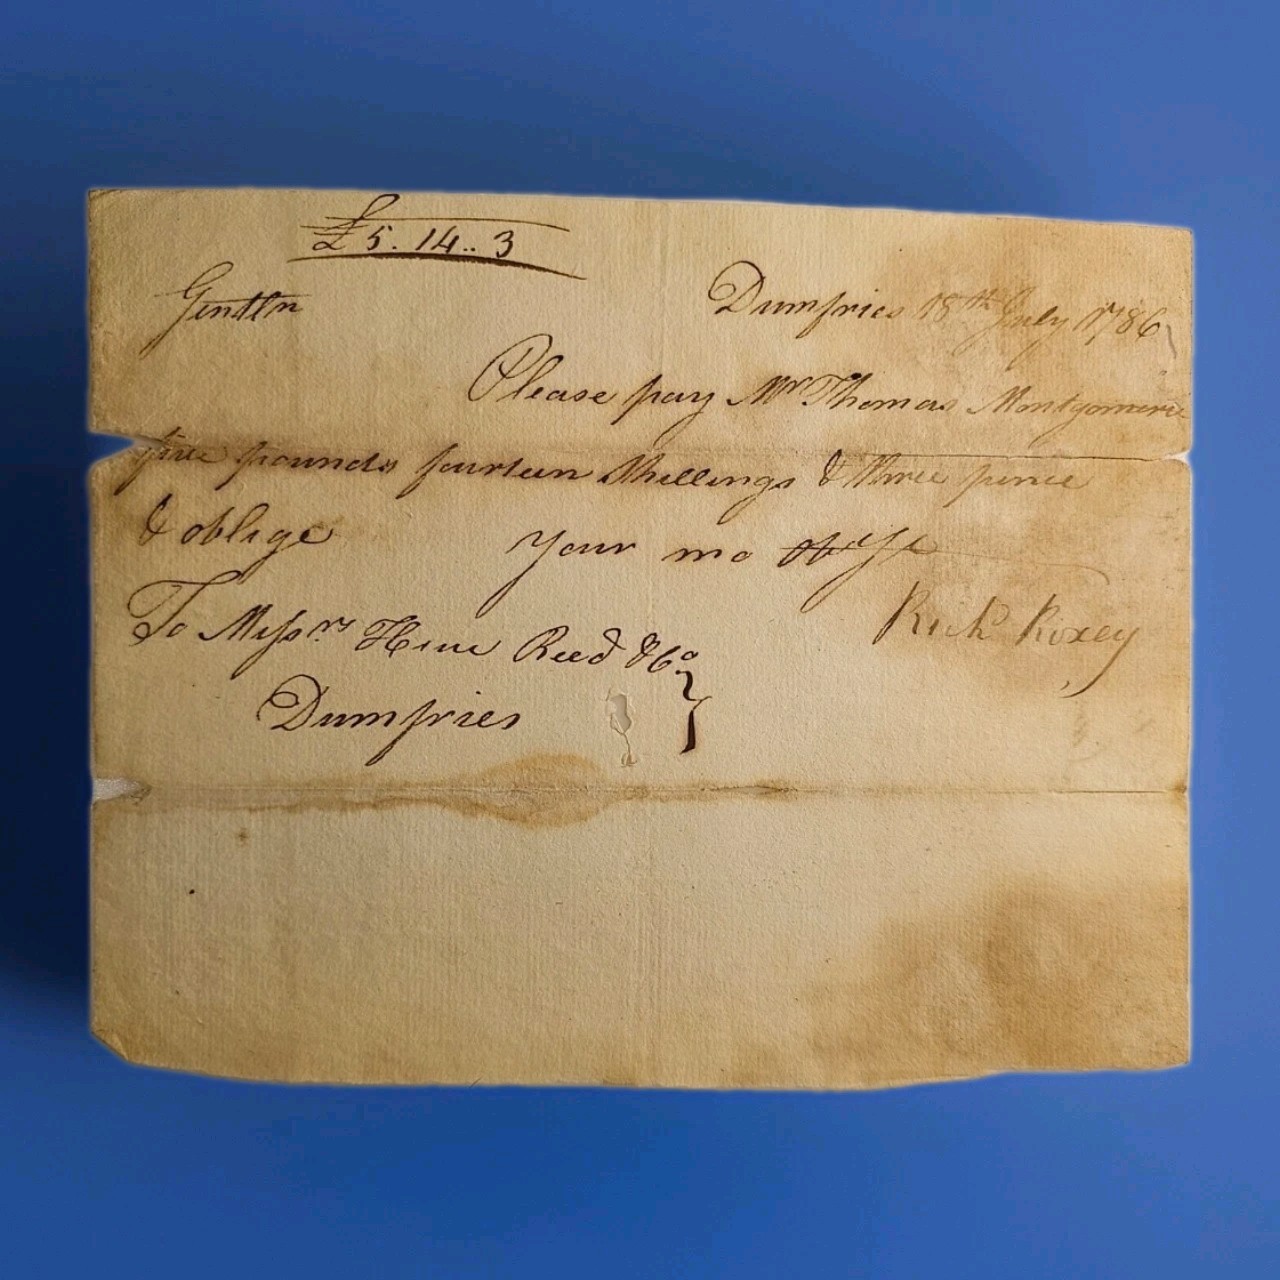 £5. 14.. 3
Gentln
Dumfries 18th July 1786
Please pay Mr Thomas Montgomerie
five pounds fourteen Shillings & three pence
& oblige Your mo
To Messrs Reed & Co
Dumfries
Richd Roxey